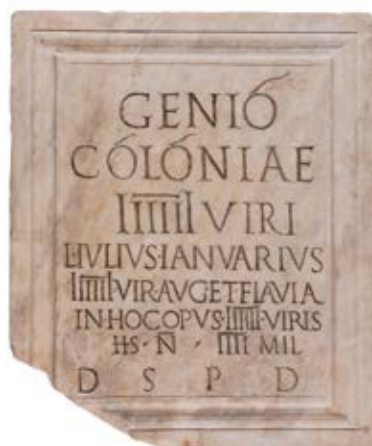 GENIÓ
CÓLÓNIAE
IIIIII VIRI
L·IVLIVS·IANVARIVS
IIIIII·VIR·AVG ET FLAVIA
IN·HOC OPVS·IIIIII·VIRIS
HS·N̄ · IIII MIL
D S P D